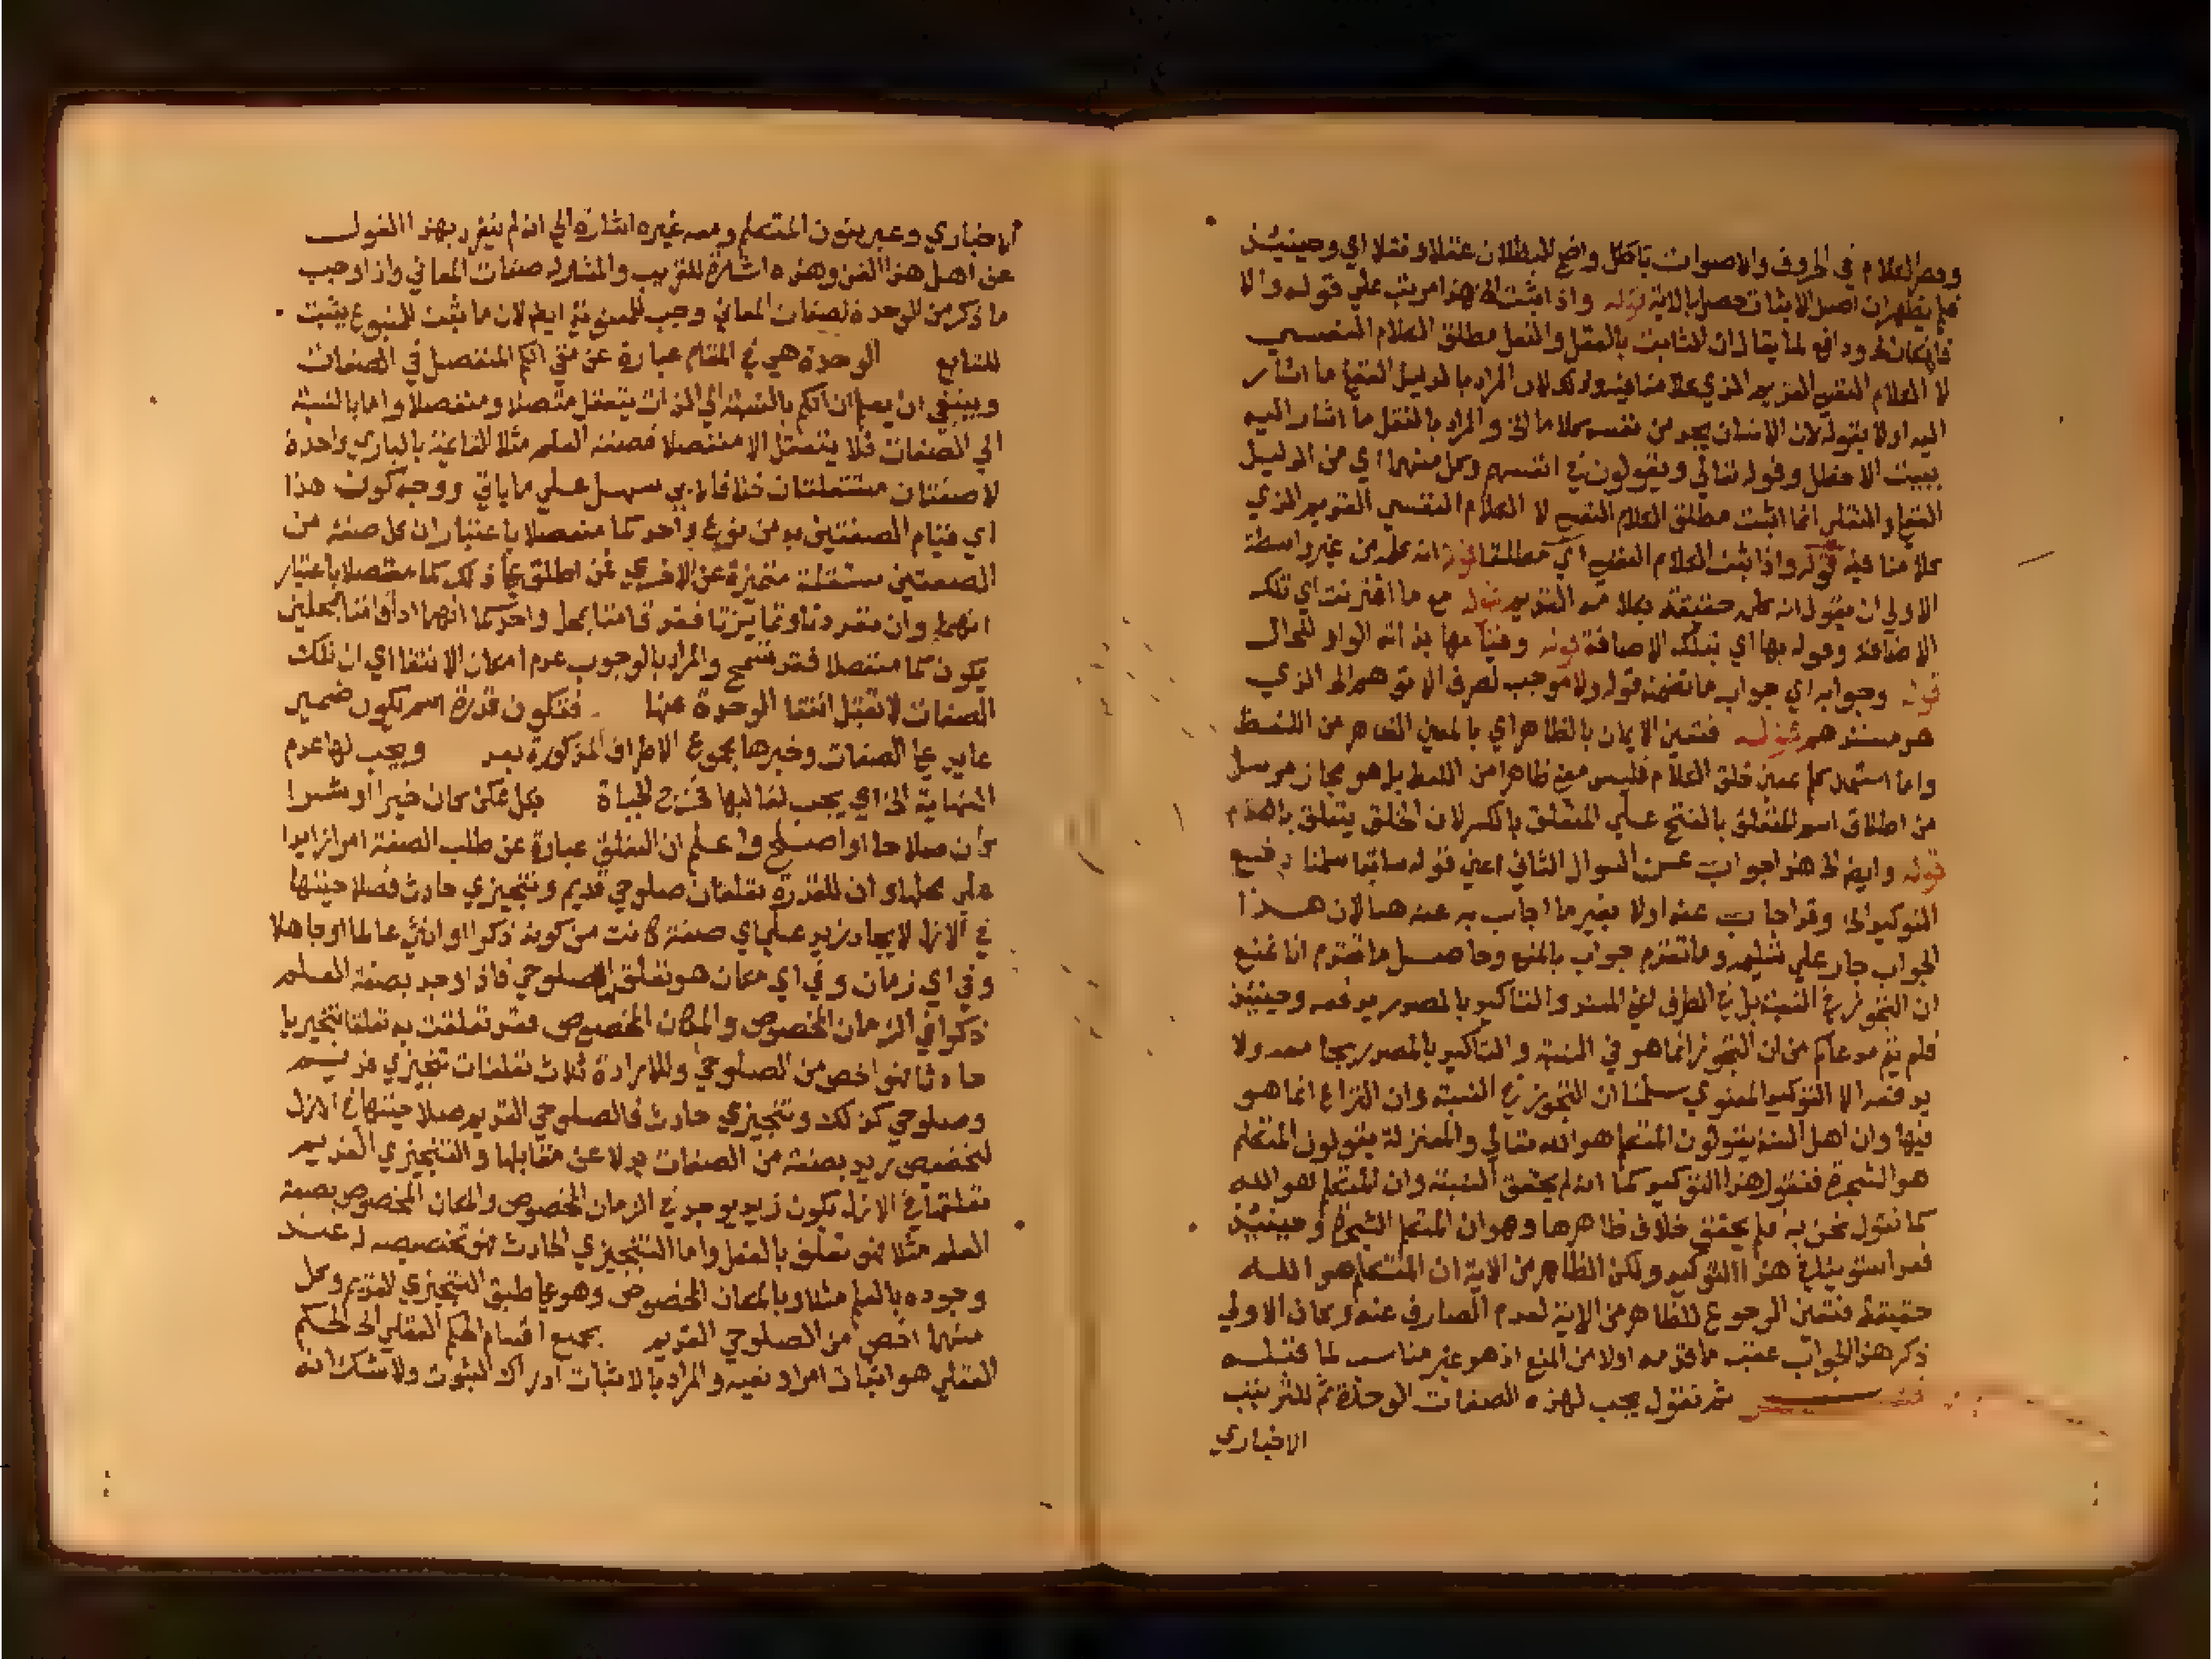 وحصر الكلام في الحروف والاصوات باطل واضح البطلان عقلا ونقلا اي وحينئذ
فلم يظهر ان اصل الاثبات حصل بالاية قوله واذا ثبت الخ هذا مرتب علي قوله والا
فالمكان الخ ودافع لما يقال ان الثابت بالعقل والنقل مطلق الكلام النفسي
لا الكلام النفسي القديم الذي كلامنا فيه وذلك لان المراد بالدليل العقلي ما اشار
اليه اولا بقوله لان الانسان يجد من نفسه كلاما الخ والمراد بالنقل ما اشار اليه
ببيت الاخطل وقوله تعالي ويقولون في انفسهم وكل منهما اي من الدليل
العقلي والنقلي انما اثبت مطلق الكلام النفسي لا الكلام النفسي القديم الذي
كلامنا فيه قوله واذا ثبت الكلام النفسي اي مطلقا قوله انه كلمه من غير واسطة
الاولي ان يقول انه كلمه حقيقة بكلامه القديم قوله مع ما اقترنت اي تلك
الاضافة وقوله بها اي بتلك الاضافة قوله وقيامها بذاته الواو للحال
قوله وجوابه اي جواب ما تضمنه قوله ولا موجب لصرف الا توهم الخ الذي
هو مستندهم قوله فتعين الايمان بالظاهر اي بالمعني الظاهر من اللفظ
واما استعمال كلم بمعني خلق الكلام فليس معني ظاهرا من اللفظ بل هو مجاز مرسل
من اطلاق اسم المتعلق بالفتح علي المتعلق بالكسر لان الخلق يتعلق بالكلام
قوله وايضا الخ هذا جواب عن السوال الثاني اعني قوله سابقا سلمنا رفع
التوكيد الخ وقد اجاب عنه اولا بغير ما اجاب به عنه هنا لان هذا
الجواب جار علي تسليمه وما تقدم جواب بالمنع وحاصل ما تقدم انا نمنع
ان التجوز في النسبة بل في الطرف اعني المسند والتاكيد بالمصدر يدفعه وحينئذ
فلم يتم مدعاكم من ان التجوز انما هو في النسبة والتاكيد بالمصدر يجامعه ولا
يدفعه الا التوكيد المعنوي سلمنا ان التجوز في النسبة وان النزاع انما هو
فيها وان اهل السنة يقولون المتكلم هو الله تعالي والمعتزلة يقولون المتكلم
هو الشجرة فنقول هذا التوكيد كما انه لم يحقق النسبة وان المتكلم هو الله
كما نقول نحن به لم يحقق خلاف ظاهرها وهو ان المتكلم الشجرة وحينئذ
فقد استوينا في هذا التوكيد ولكن الظاهر من الاية ان المتكلم هو الله
حقيقة فتعين الرجوع للظاهر من الاية لعدم الصارف عنه وكان الاولي
ذكر هذا الجواب عقب ما قدمه اولا من المنع اذ هو غير مناسب لما قبله
ثم نقول يجب لهذه الصفات الوحدة ثم للترتيب
الاخباري
الاخباري وعبر بنون المتكلم ومعه غيره اشارة الي انه لم ينفرد بهذا القول
عن اهل هذا الفن وهذه اشارة للقريب والمشار له صفات المعاني واذا وجب
ما ذكر من الوحدة لصفات المعاني وجب للمعنوية ايضا لان ما ثبت للمتبوع يثبت
للتابع الوحدة هي في المقام عبارة عن نفي الكم المنفصل في الصفات
وينبغي ان يعلم ان الكم بالنسبة الي الذات يتعقل متصلا ومنفصلا واما بالنسبة
الي الصفات فلا يتعقل الا منفصلا فصفة العلم مثلا القائمة بالباري واحدة
لا صفتان مستقلتان خلافا لابي سهل علي ما ياتي ووجه كون هذا
اي قيام الصفتين به من نوع واحد كما منفصلا باعتبار ان كل صفة من
الصفتين مستقلة متميزة عن الاخري فمن اطلق علي ذلك كما متصلا باعتبار
انهما وان تعددتا وتمايزتا فقد قامتا بمحل واحد كما انهما اذا قامتا بمحلين
يكون كما منفصلا فقد تسمح والمراد بالوجوب عدم امكان الانتفا اي ان تلك
الصفات لا تقبل انتفا الوحدة عنها فتكون قدرة اسم تكون ضمير
عايد علي الصفات وخبرها مجموع الاطراف المذكورة بعد ويجب لها عدم
النهاية الخ اي يجب لغالبها فخرج الحياة بكل ممكن كان خيرا او شرا
كان صلاحا او اصلح واعلم ان التعلق عبارة عن طلب الصفة امرا زايدا
علي محلها وان للقدرة تعلقان صلوحي قديم وتنجيزي حادث فصلاحيتها
في الازل لايجاد زيد علي اي صفة كانت من كونه ذكرا او انثي عالما او جاهلا
وفي اي زمان وفي اي مكان هو تعلق الصلوحي فاذا وجد بصفة العلم
ذكرا في الزمان المخصوص والمكان المخصوص فقد تعلقت به تعلقا تنجيزيا
حادثا فهو اخص من الصلوحي وللارادة ثلاث تعلقات تنجيزي قديم
وصلوحي كذلك وتنجيزي حادث فالصلوحي القديم صلاحيتها في الازل
لتخصيص زيد بصفة من الصفات بدلا عن مقابلها والتنجيزي القديم
تعلقها في الازل بكون زيد يوجد في الزمان المخصوص والمكان المخصوص بصفة
العلم مثلا فهو تعلق بالفعل واما التنجيزي الحادث فهو تخصيصه له عند
وجوده بالعلم مثلا وبالمكان المخصوص وهو علي طبق التنجيزي القديم وكل
منهما اخص من الصلوحي القديم بجميع اقسام الحكم العقلي الخ الحكم
العقلي هو اثبات امر او نفيه والمراد بالاثبات ادراك الثبوت ولا شك انه